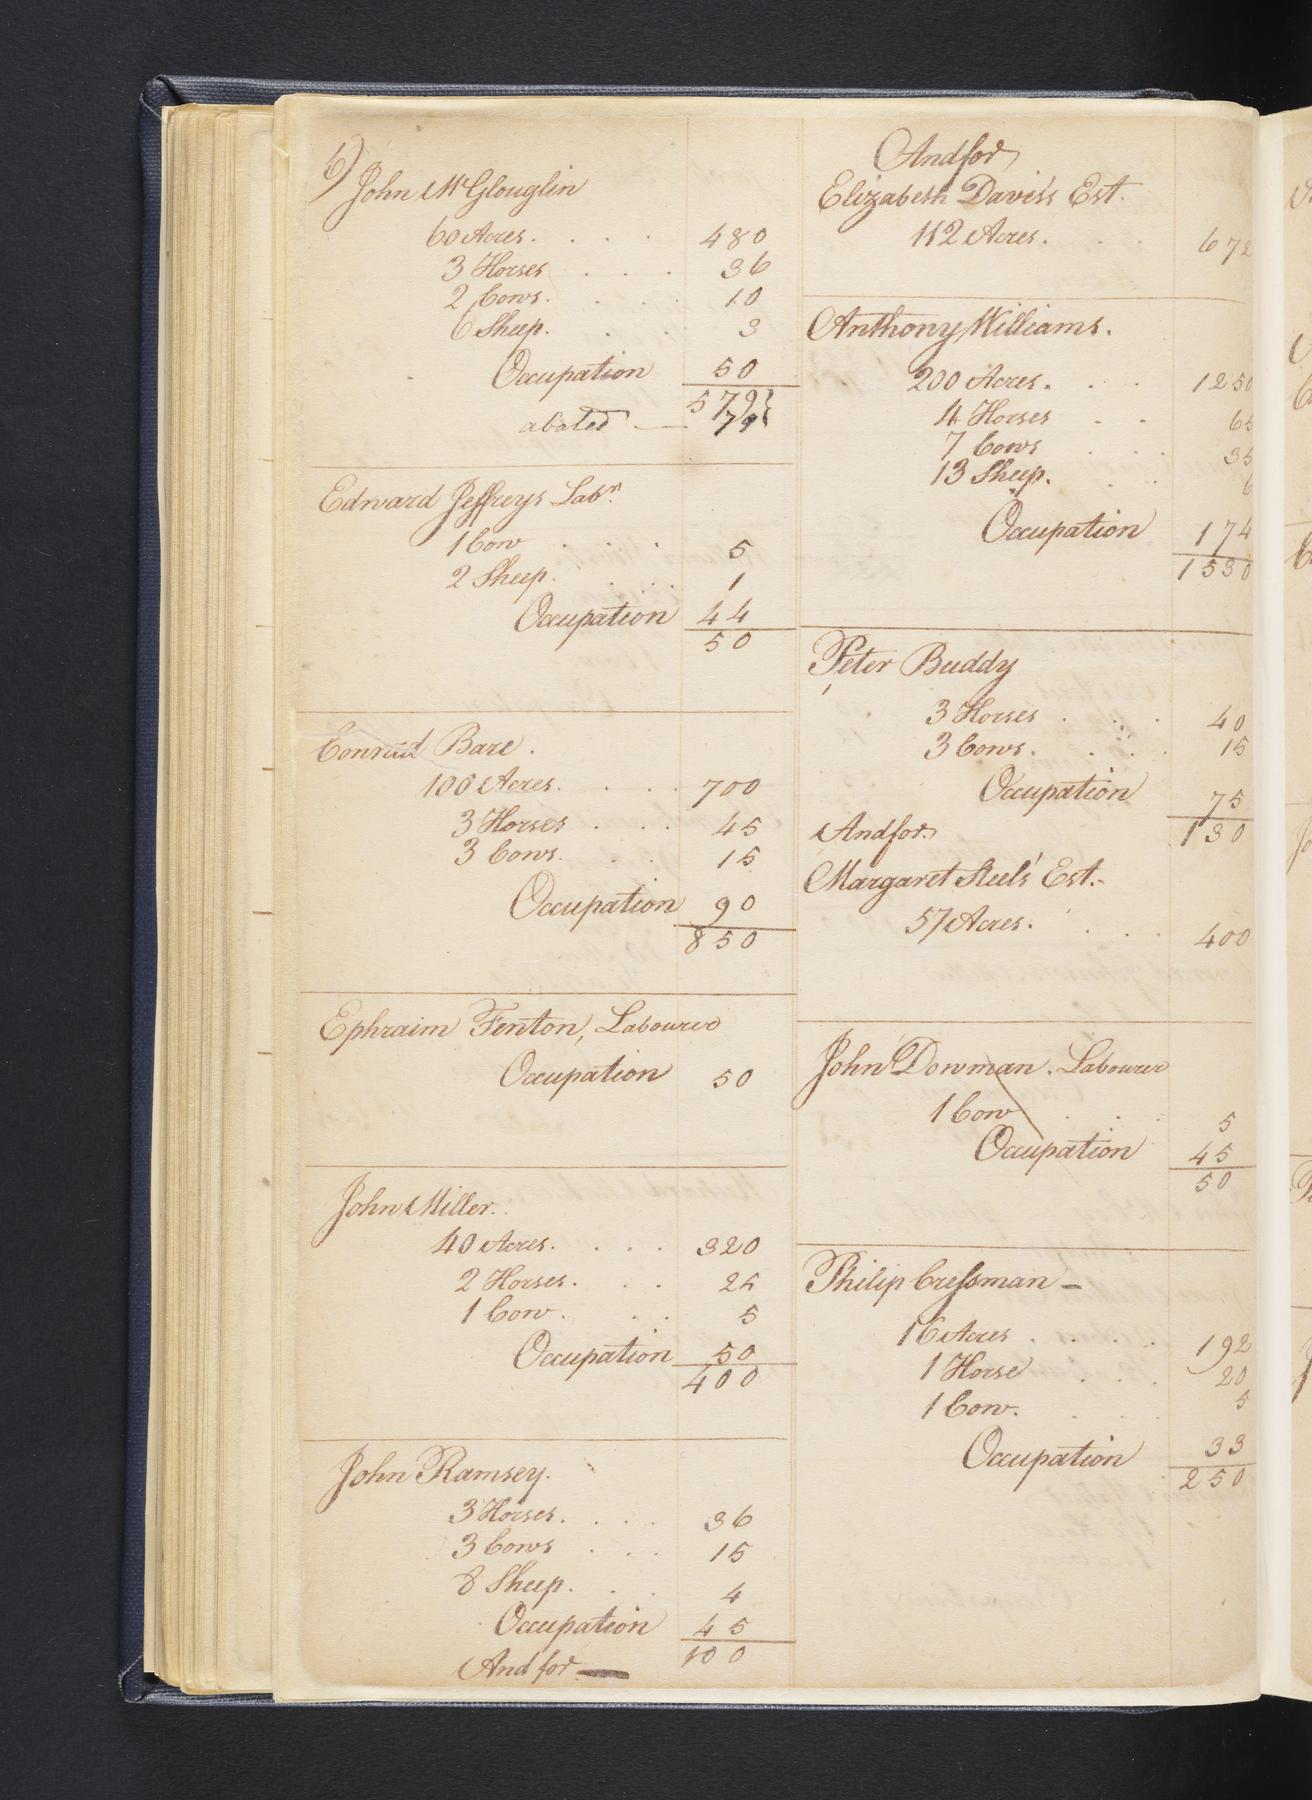 6)
John McGlouglin
60 Acres. . . . . 480
3 Horses . . . 36
2 Cows. . . . 10
6 Sheep. . . . 3
Occupation 50
579
abated — 79
Edward Jeffreys Labr.
1 Cow . . . 5
2 Sheep. . . . 1
Occupation 44
50
Conrad Bare.
100 Acres. . . . 700
3 Horses . . . 45
3 Cows. . . 15
Occupation 90
850
Ephraim Fenton, Labourer
Occupation 50
John Miller.
40 Acres. . . . 320
2 Horses. . . 25
1 Cow. . . 5
Occupation 50
400
John Ramsey.
3 Horses. . . . 36
3 Cows . . . 15
8 Sheep. . . 4
Occupation 45
100
And for —
And for
Elizabeth Davis's Est.
112 Acres. . . 672
Anthony Williams.
200 Acres. . . 1250
4 Horses . . 65
7 Cows . . . 35
13 Sheep. . . 6
Occupation 174
1530
Peter Buddy
3 Horses . . . 40
3 Cows. . . . 15
Occupation 75
130
And for
Margaret Steels' Est.
57 Acres. . . . 400
John Dowman. Labourer
1 Cow . . . 5
Occupation 45
50
Philip Cressman —
16 Acres . . . . 192
1 Horse . . . 20
1 Cow. . . . 5
Occupation 33
250